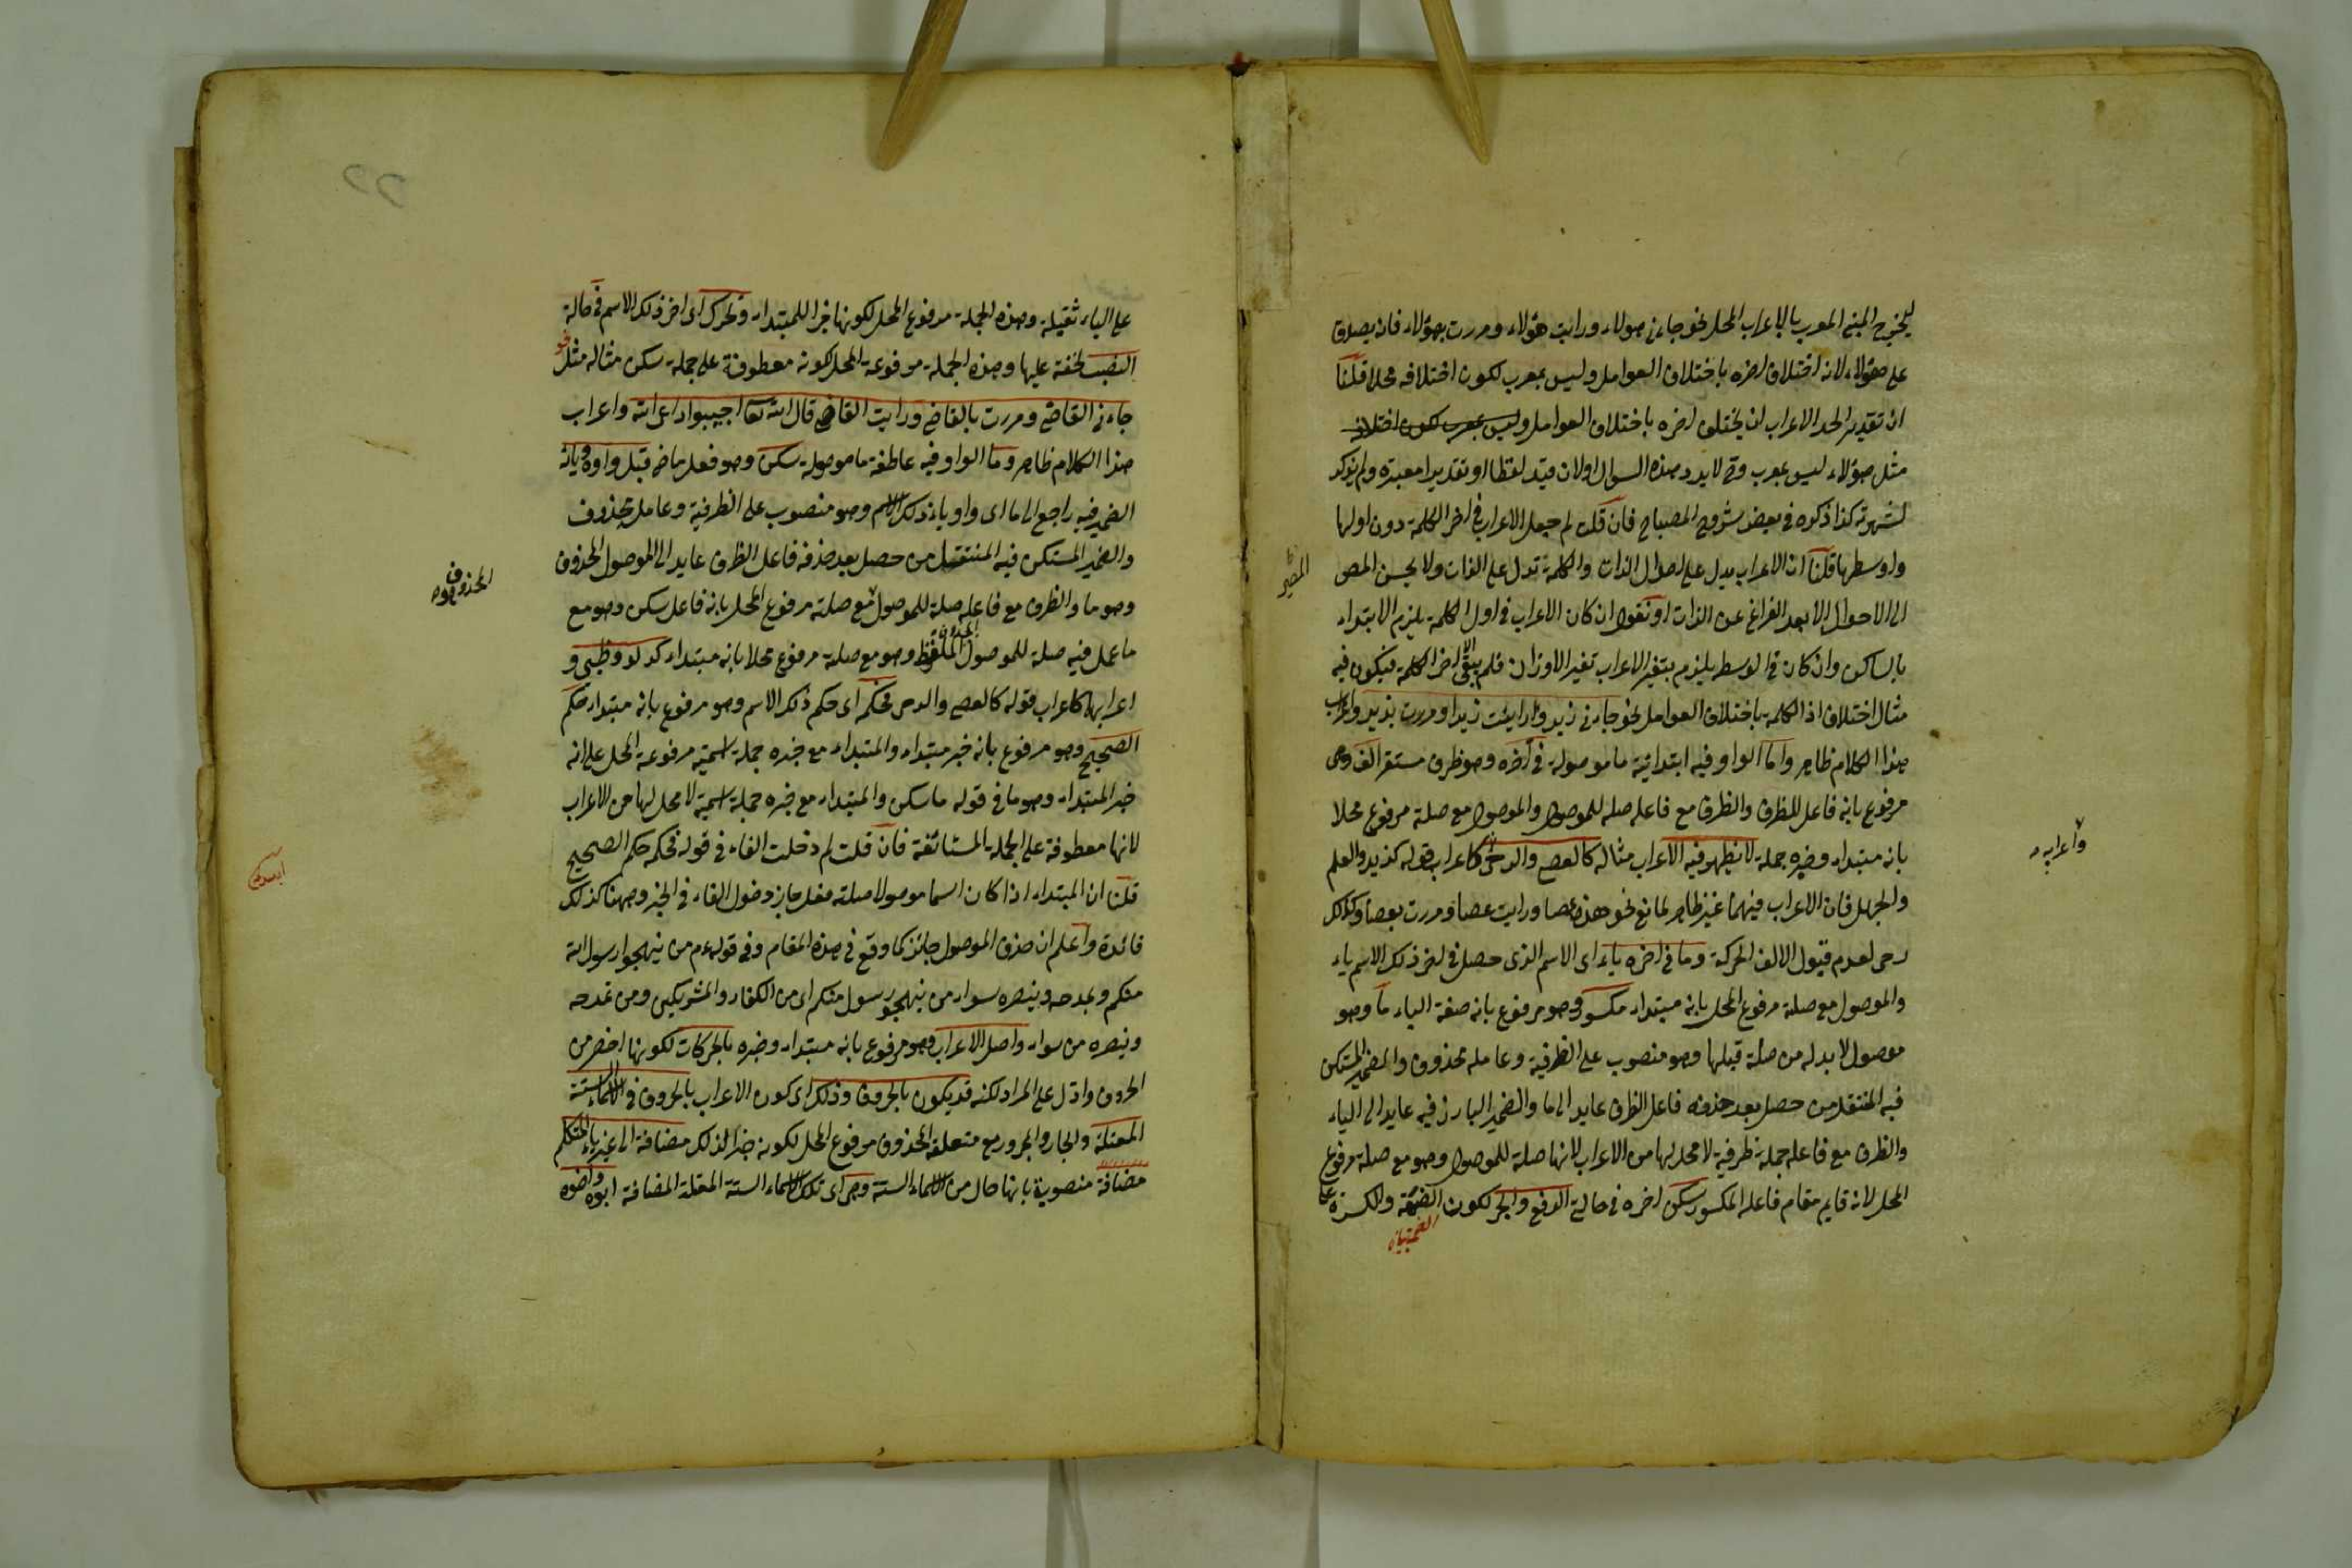 ليخرج المبنى المعرب بالاعراب المحل نحو جاءنى هولاء ورايت هؤلاء ومررت بهؤلاء فان يصدق
على هؤلاء لانه اختلاف اخره باختلاف العوامل وليس بمعرب لكون اختلافه محلا قلنا
ان تقدير الحد الاعراب ان يختلف اخره باختلاف العوامل وليس بمعرب لكون اختلافه
مثل هؤلاء ليس بمعرب وح لا يرد هذه السوال اولان قيد لفظا او تقديرا معبترة ولم يذكر
لشهرته كذا ذكره فى بعض شروح المصباح فان قلت لم جعل الاعراب فى اخر الكلمة دون اولها
واوسطها قلنا ان الاعراب يدل على احوال الذات والكلمة تدل على الذات ولا يحسن المص
المصير
الى الاحوال الا بعد الفراغ عن الذات او نقول ان كان الاعراب فى اول الكلمة يلزم الابتداء
بالساكن وان كان فى الوسط يلزم بتغير الاعراب تغير الاوزان فلم يبق الا اخر الكلمة فيكون فيه
مثال اختلاف اخر الكلمة باختلاف العوامل نحو جاءنى زيد ورايت زيدا ومررت بزيد واعراب
هذا الكلام ظاهر واما الواو فيه ابتدائية ما موصولة فى آخره وهو ظرف مستقر الف وهى
مرفوع بانه فاعل للظرف والظرف مع فاعله صله للموصول والموصول مع صلة مرفوع محلا
بانه مبتداء وخبره جملة لا يظهر فيه الاعراب مثاله كالعصى والرحى كاعراب قوله كزيد والعلم
واعرابه
والجهل فان الاعراب فيهما غير ظاهر لمانع نحو هذه عصا ورايت عصا ومررت بعصا وكذلك
رحى لعدم قبول الالف الحركة وما فى اخره ياء اى الاسم الذى حصل فى اخر ذلك الاسم ياء
والموصول مع صلة مرفوع المحل بانه مبتداء مكسور وهو مرفوع بانه صفة الياء ما وهو
موصول لا بد له من صلة قبلها وهو منصوب على الظرفية وعامله محذوف والضمير المستكن
فيه المنتقل من حصل بعد حذفه فاعل الظرف عايد الى ما والضمير البارز فيه عايد الى الياء
والظرف مع فاعله جملة ظرفية لا محل لها من الاعراب لانها صلة للموصول وهو مع صلة مرفوع
المحل لانه قايم مقام فاعله المكسور سكن اخره فى حالة الرفع والجر لكون الضمة والكسرة
على الياء ثقيلة وهذه الجملة مرفوع المحل لكونها خبرا للمبتداء وتحرك اى اخر ذلك الاسم فى حالة
النصب لخفة عليها وهذه الجملة مرفوعة المحل لكونه معطوفة على جملة سكن مثاله مثل نحو
جاءنى القاضى ومررت بالقاضى ورايت القاضى قال الله تعا اجيبوا داعى الله واعراب
هذا الكلام ظاهر وما الواو فيه عاطفة ما موصولة سكن وهو فعل ماض قبل واوه ويائه
الضمير فيه راجع الى ما اى واو ياء ذلك الاسم وهو منصوب على الظرفية وعامله محذوف
والضمير المستكن فيه المنتقل من حصل بعد حذفه فاعل الظرف عايد الى الموصول المحذوف
وهو ما والظرف مع فاعله صلة للموصول مع صلته مرفوع المحل بانه فاعل سكن وهو مع
المحذوف وهو
ما عمل فيه صلة للموصول الملفوظ وهو مع صلته مرفوع محلا بانه مبتداء كدلو وظبى و
اعرابها كاعراب قوله كالعصى والرحى فحكم اى حكم ذلك الاسم وهو مرفوع بانه مبتداء حكم
الصحيح وهو مرفوع بانه خبر مبتداء والمتبداء مع خبره جملة اسمية مرفوعة المحل على انه
خبر المبتداء وهو ما فى قوله ما سكن والمبتداء مع خبره جملة اسمية لا محل لها من الاعراب
لانها معطوفة على الجملة المستانفة فان قلت لم دخلت الفاء فى قوله فحكمه حكم الصحيح
قلنا ان المبتداء اذا كان اسما موصولا صلته فعل جاز دخول الفاء فى الخبر وههنا كذلك
فائدة واعلم ان حذف الموصول جائز كما وقع فى هذه المقام وفى قوله م من يهجوا رسول الله
منكم ويمدحه وينصره سواء من يهجو رسول منكم اى من الكفار والمشركين ومن يمدحه
وينصره من سواء واصل الاعراب وهو مرفوع بانه مبتداء وخبره بالحركات لكونها اخصر من
الحروف وادل على المراد لكنه قد يكون بالحروف وذلك اى كون الاعراب بالحروف فى الاسماء الستة
المعتلة والجار والمجرور مع متعلقه المحذوف مرفوع المحل لكونه خبرا لذلك مضافة الى غير ياء المتكلم
مضافة منصوبة بانها حال من الاسماء الستة وهى اى تلك الاسماء الستة المعتلة المضافة ابوه واخوه